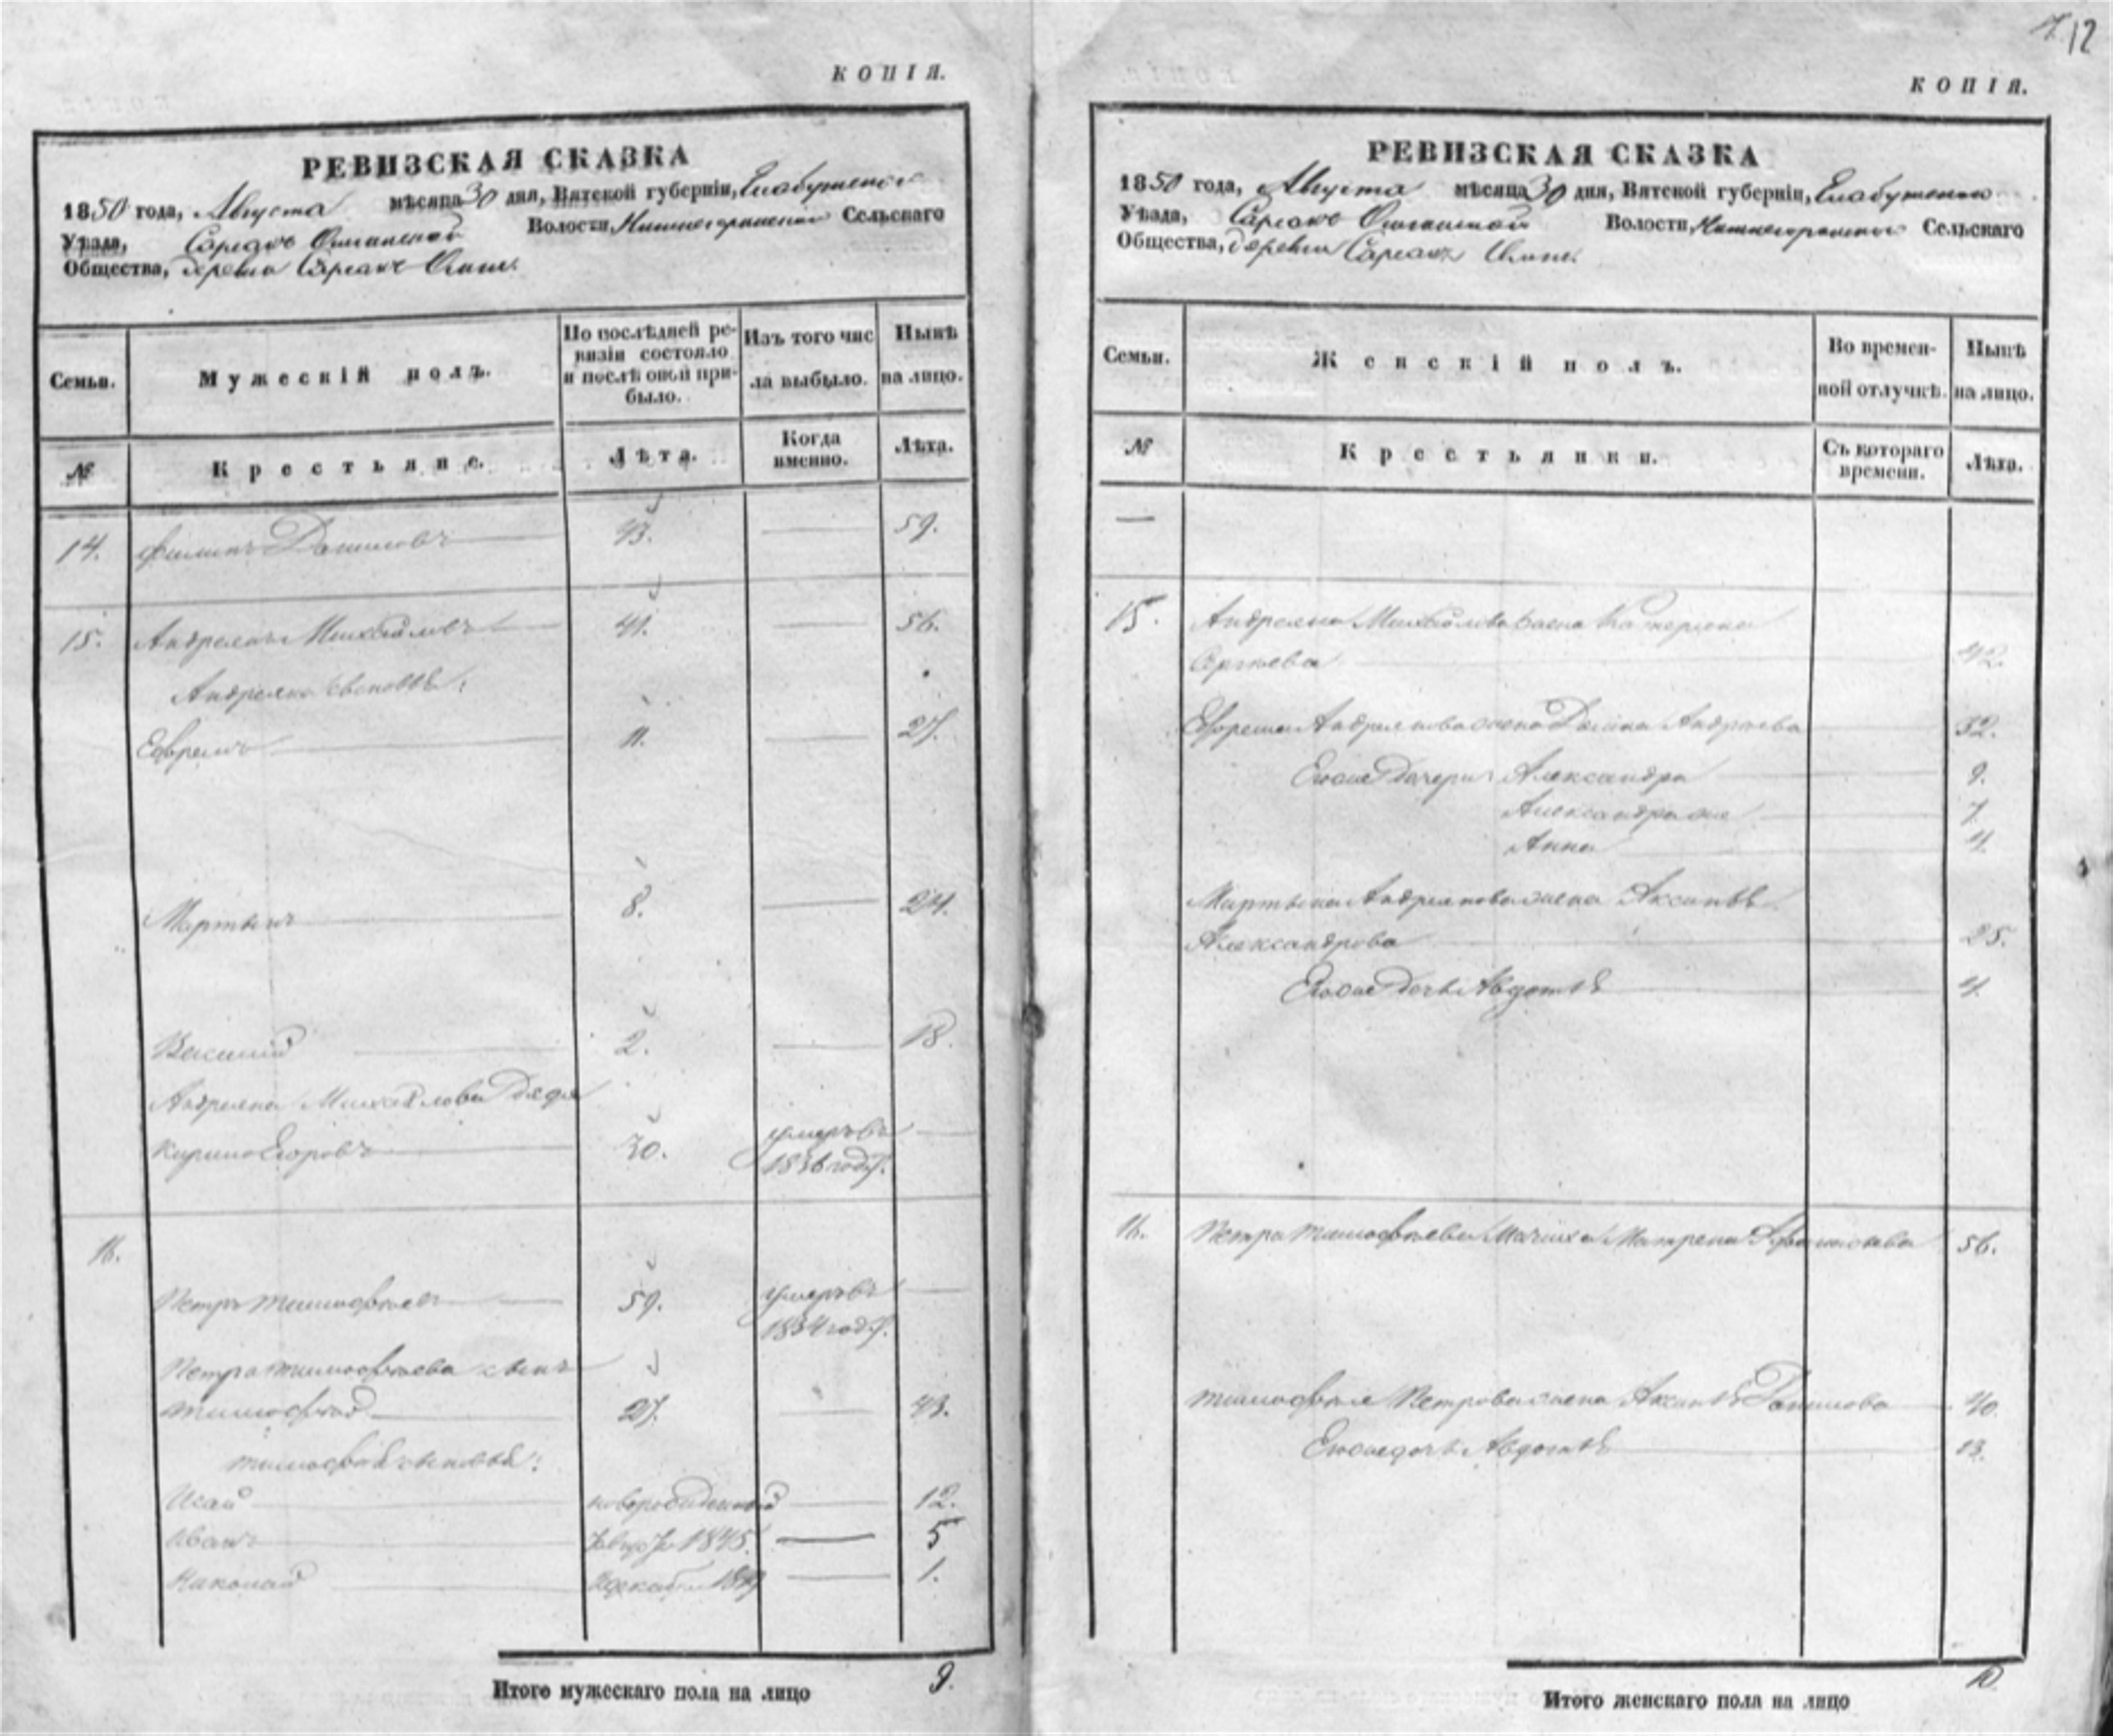 12
КОПІЯ.
РЕВИЗСКАЯ СКАЗКА
1850 года, Августа мѣсяца 30 дня, Вятской губерніи, Елабужскаго
Уѣзда, Волости, Сельскаго
Общества, деревни
Семьи.
Мужескій полъ.
По послѣдней ре-
визіи состояло
и послѣ оной при-
было.
Изъ того чис
ла выбыло.
Нынѣ
на лицо.
№
Крестьяне.
Лѣта.
Когда
именно.
Лѣта.
14. Филипъ Даниловъ 43. 59.
15. Андреянъ Михайловъ 41. 56.
Андреяна сыновья:
Ефремъ 11. 27.
Мартынъ 8. 24.
Василій 2. 18.
Андреяна Михайлова дядя
Кирило Егоровъ 30. умеръ въ
1836 году.
16.
Петръ Тимофѣевъ 59. умеръ въ
1834 году.
Петра Тимофѣева сынъ
Тимофѣй 27. 43.
Тимофѣя сыновья:
Исай новорожденный 12.
Иванъ 1845. 5
Николай 1849 1.
Итого мужескаго пола на лицо 9.
КОПІЯ.
РЕВИЗСКАЯ СКАЗКА
1850 года, Августа мѣсяца 30 дня, Вятской губерніи, Елабужскаго
Уѣзда, Волости, Сельскаго
Общества, деревни
Семьи.
Женскій полъ.
Во времен-
ной отлучкѣ.
Нынѣ
на лицо.
№
Крестьянки.
Съ котораго
времени.
Лѣта.
15. Андреяна Михайлова жена Катерина
Сергѣева 42.
Ефрема Андреянова жена Андреева 32.
Его же дочери Александра 9.
Александра же 7.
Анна 4.
Мартына Андреянова жена Аксинья
Александрова 25.
Его же дочь Авдотья 4.
16. Петра Тимофѣева мачиха Матрена Афанасьева 56.
Тимофѣя Петрова жена Аксинья Данилова 40.
Его же дочь Авдотья 13.
Итого женскаго пола на лицо 10